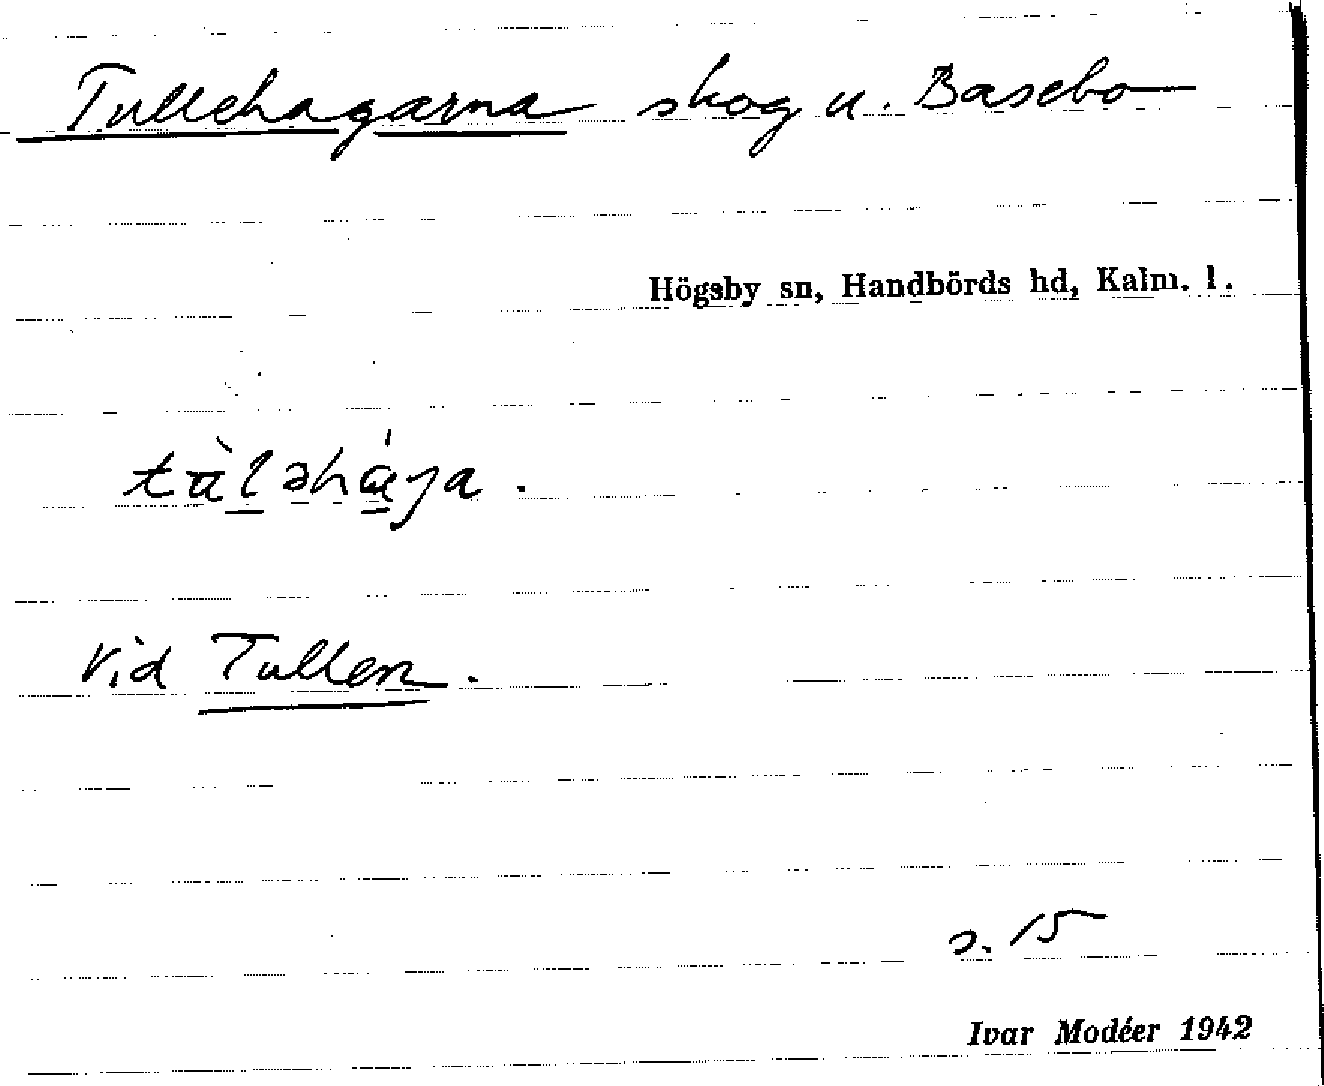 Tullehagarna skog u. Basebo
Högsby sn, Handbörds hd, Kalm. l.
Vid Tullen.
s. 15
Ivar Modéer 1942